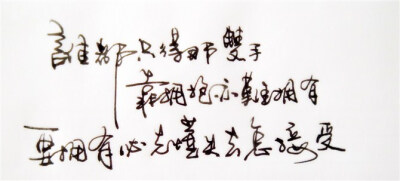 誰都只得那雙手
靠拥抱亦難拥有
要拥有必先懂失去怎接受